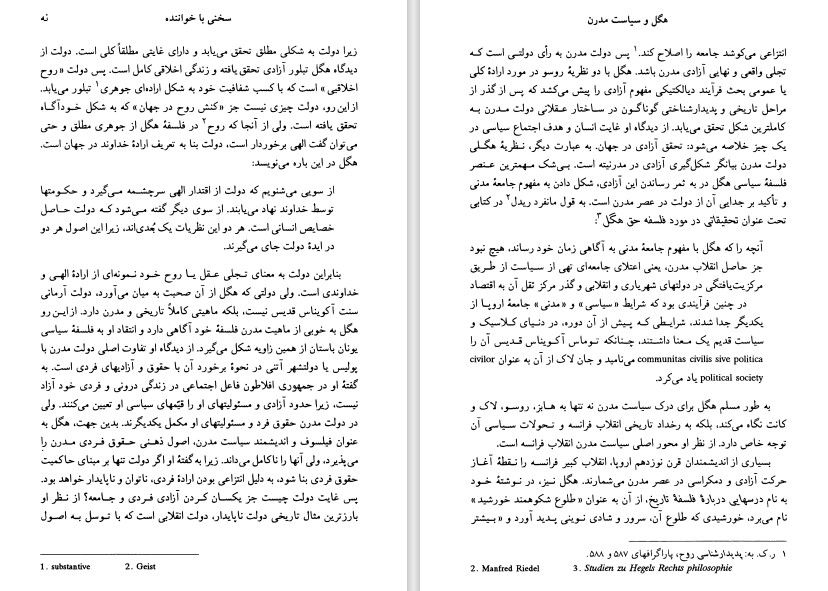 هگل و سیاست مدرن
انتزاعی می‌کوشد جامعه را اصلاح کند.۱ پس دولت مدرن به رأی دولتی است کـه
تجلی واقعی و نهایی آزادی مدرن باشد. هگل با دو نظریهٔ روسو در مورد ارادهٔ کلی
یا عمومی بحث فرآیند دیالکتیکی مفهوم آزادی را پیش می‌کشد که پس از گذر از
مراحل تاریخی و پدیدارشناختی گوناگون در ساختار عقلانی دولت مدرن بـه
کاملترین شکل تحقق می‌یابد. از دیدگاه او غایت انسان و هدف اجتماع سیاسی در
یک چیز خلاصه می‌شود: تحقق آزادی در جهان. به عبارت دیگر، نظریهٔ هگـلی
دولت مدرن بیانگر شکل‌گیری آزادی در مدرنیته است. بی‌شک مهمترین عنصر
فلسفهٔ سیاسی هگل در به ثمر رساندن این آزادی، شکل دادن به مفهوم جامعهٔ مدنی
و تأکید بر جدایی آن از دولت در عصر مدرن است. به قول مانفرد ریدل۲ در کتابی
تحت عنوان تحقیقاتی در مورد فلسفه حق هگل۳:
آنچه را که هگل با مفهوم جامعهٔ مدنی به آگاهی زمان خود رساند، هیچ نبود
جز حاصل انقلاب مدرن، یعنی اعتلای جامعه‌ای تهی از سیاست از طریق
مرکزیت‌یافتگی در دولتهای شهریاری و انقلابی و گذر مرکز ثقل آن به اقتصاد
در چنین فرآیندی بود که شرایط «سیاسی» و «مدنی» جامعهٔ اروپا از
یکدیگر جدا شدند، شرایطـی کـه پـیش از آن دوره، در دنیـای کلاسیک و
سیاست قدیم یک معنا داشتند، چنانکه توماس آکویناس قدیس آن را
communitas civilis sive politica می‌نامید و جان لاک از آن به عنوان civilor
political society یاد می‌کرد.
به طور مسلم هگل برای درک سیاست مدرن نه تنها به هابز، روسو، لاک و
کانت نگاه می‌کند، بلکه به رخداد تاریخی انقلاب فرانسه و تحولات سیاسی آن
توجه خاص دارد. از نظر او محور اصلی سیاست مدرن انقلاب فرانسه است.
بسیاری از اندیشمندان قرن نوزدهم اروپا، انقلاب کبیر فرانسه را نقطهٔ آغـاز
حرکت آزادی و دمکراسی در عصر مدرن می‌شمارند. هگل نیز، در نوشتهٔ خـود
به نام درسهایی دربارهٔ فلسفهٔ تاریخ، از آن به عنوان «طلوع شکوهمند خورشید»
نام می‌برد، خورشیدی که طلوع آن، سرور و شادی نوینی پدید آورد و «بیشتر
۱ ر.ک. به: پدیدارشناسی روح، پاراگرافهای ۵۸۷ و ۵۸۸.
2. Manfred Riedel 3. Studien zu Hegels Rechts philosophie
سخنی با خواننده نه
زیرا دولت به شکلی مطلق تحقق می‌یابد و دارای غایتی مطلقاً کلی است. دولت از
دیدگاه هگل تبلور آزادی تحقق یافته و زندگی اخلاقی کامل است. پس دولت «روح
اخلاقی» است که با کسب شفافیت خود به شکل اراده‌ای جوهری۱ تبلور می‌یابد.
از این رو، دولت چیزی نیست جز «کنش روح در جهان» که به شکل خـودآگـاه
تحقق یافته است. ولی از آنجا که روح۲ در فلسفهٔ هگل از جوهری مطلق و حتی
می‌توان گفت الهی برخوردار است، دولت بنا به تعریف ارادهٔ خداوند در جهان است.
هگل در این باره می‌نویسد:
از سویی می‌شنویم که دولت از اقتدار الهی سرچشـمه مـی‌گیرد و حکـومتها
توسط خداوند نهاد می‌یابند. از سوی دیگر گفته مـی‌شود کـه دولت حـاصل
خصایص انسانی است. هر دو این نظریات یک بُعدی‌اند، زیرا این اصول هر دو
در ایدهٔ دولت جای می‌گیرند.
بنابراین دولت به معنای تـجلی عـقل یـا روح خـود نـمونه‌ای از ارادهٔ الهـی و
خداوندی است. ولی دولتی که هگل از آن صحبت به میان می‌آورد، دولت آرمانی
سنت آکویناس قدیس نیست، بلکه ماهیتی کاملاً تاریخی و مدرن دارد. از این رو
هگل به خوبی از ماهیت مدرن فلسفهٔ خود آگاهی دارد و انتقاد او به فلسفهٔ سیاسی
یونان باستان از همین زاویه شکل می‌گیرد. از دیدگاه او تفاوت اصلی دولت مدرن با
پولیس یا دولتشهر آتنی در نحوهٔ برخورد آن با حقوق و آزادیهای فردی است. به
گفتهٔ او در جمهوری افلاطون فاعل اجتماعی در زندگی درونی و فردی خود آزاد
نیست، زیرا حدود آزادی و مسئولیتهای او را قیّمهای سیاسی او تعیین می‌کنند. ولی
در دولت مدرن حقوق فرد و مسئولیتهای او مکمل یکدیگرند. بدین جهت، هگل به
عنوان فیلسوف و اندیشمند سیاست مدرن، اصول ذهنـی حقـوق فـردی مـدرن را
می‌پذیرد، ولی آنها را ناکامل می‌داند. زیرا به گفتهٔ او اگر دولت تنها بر مبنای حاکمیت
حقوق فردی بنا شود، به دلیل انتزاعی بودن ارادهٔ فردی، ناتوان و ناپایدار خواهد بود.
پس غایت دولت چیست جز یکسـان کـردن آزادی فـردی و جـامعه؟ از نظر او
بارزترین مثال تاریخی دولت ناپایدار، دولت انقلابی است که با توسل به اصـول
1. substantive 2. Geist